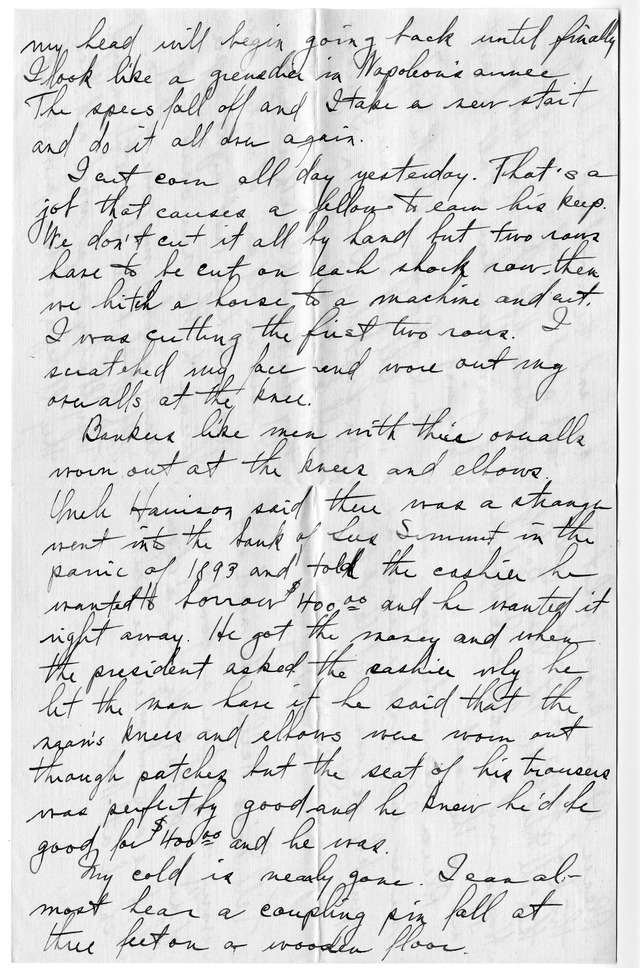 my head will begin going back until finally
I look like a grenadier in Napoleon's armee
The specs fall off and I take a new start
and do it all over again.
I cut corn all day yesterday. That's a
job that causes a fellow to earn his keep.
We don't cut it all by hand but two rows
have to be cut on each shock row then
we hitch a horse to a machine and cut.
I was cutting the first two rows. I
scratched my face and wore out my
overalls at the knee.
Bankers like men with their overalls
worn out at the knees and elbows.
Uncle Harrison said there was a stranger
went into the bank of Lees Summit in the
panic of 1893 and told the cashier he
wanted to borrow $400.00 and he wanted it
right away. He got the money and when
the president asked the cashier why he
let the man have it he said that the
man's knees and elbows were worn out
through patches but the seat of his trousers
was perfectly good and he knew he'd be
good for $400.00 and he was.
My cold is nearly gone. I can al-
most hear a coupling pin fall at
three feet on a wooden floor.